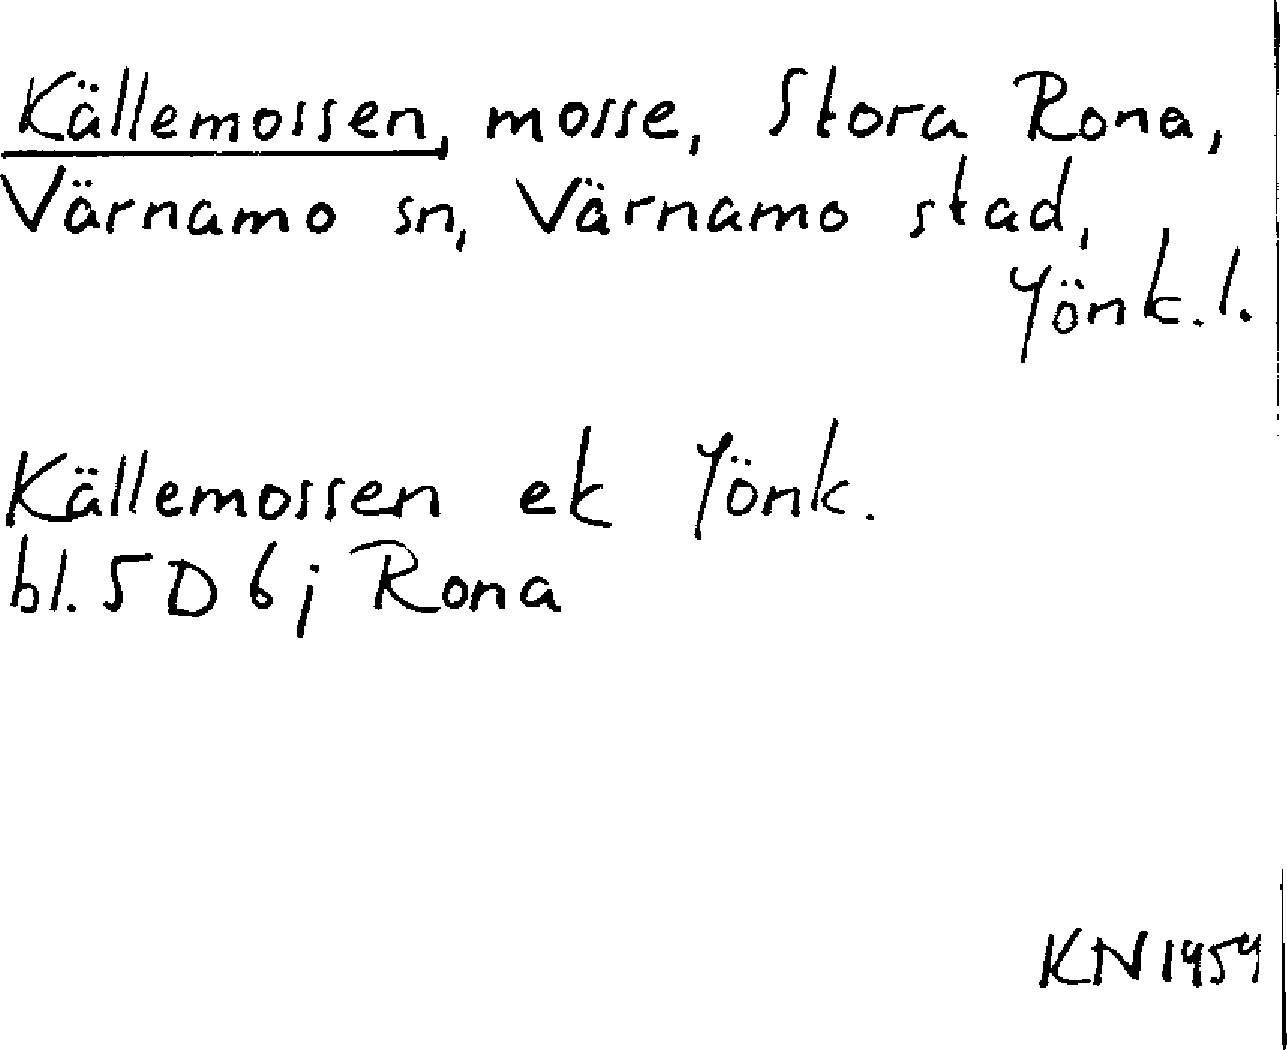 Källemossen, mosse, Stora Rona,
Värnamo sn, Värnamo stad,
Jönk. l.
Källemossen ek Jönk.
bl. 5 D 6 j Rona
KN 1959